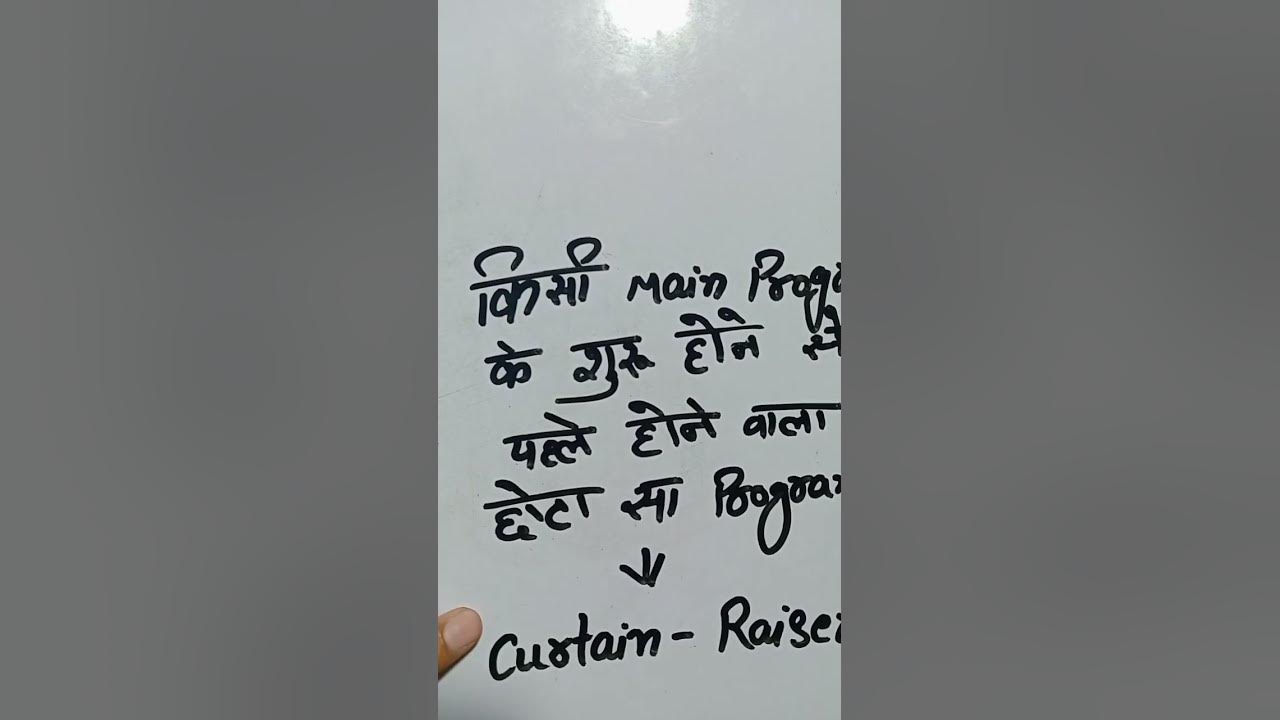 किसी Main Progra
के शुरू होने से
पहले होने वाला
छोटा सा Program
↓
Curtain - Raiser